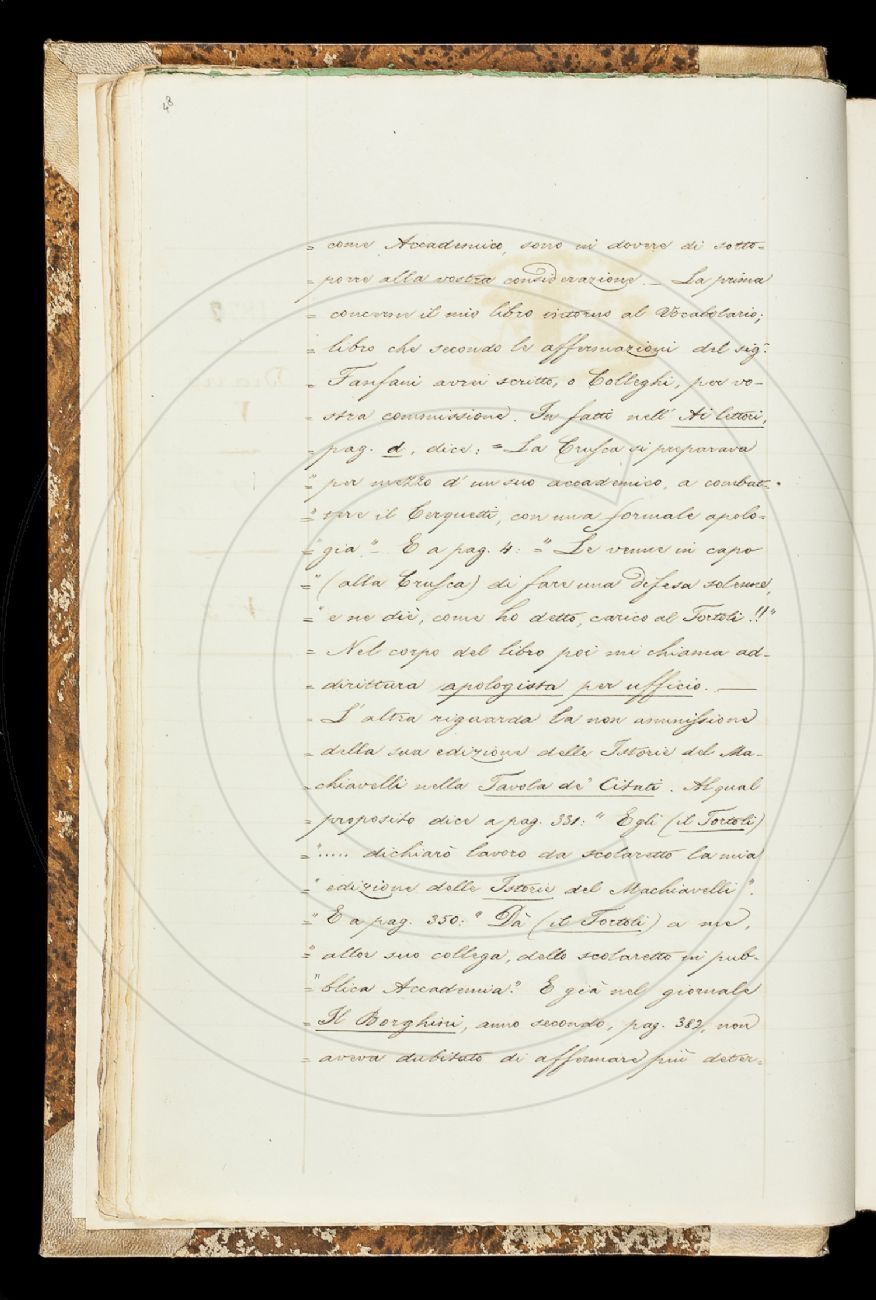 48
= come Accademico, sono in dovere di sotto-
= porre alla vostra considerazione. — La prima
= concerne il mio libro intorno al Vocabolario;
= libro che secondo le affermazioni del sig.r
= Fanfani avrei scritto, o Colleghi, per vo-
= stra commissione. In fatti nell' Ai lettori,
= pag. d, dice: = La Crusca si preparava
=" per mezzo d'un suo accademico, a combat-
=" tere il Cerquetti, con una formale apolo-
=" gia." — E a pag. 4: =" Le venne in capo
=" (alla Crusca) di fare una difesa solenne,
=" e ne diè, come ho detto, carico al Tortoli!!"
= Nel corpo del libro poi mi chiama ad-
= dirittura apologista per ufficio. —
= L'altra riguarda la non ammissione
= della sua edizione delle Istorie del Ma-
= chiavelli nella Tavola de' Citati. Al qual
= proposito dice a pag. 331: " Egli (il Tortoli)
=" ..... dichiarò lavoro da scolaretto la mia
=" edizione delle Istorie del Machiavelli".
=" E a pag. 350: " Dà (il Tortoli) a me,
=" allor suo collega, dello scolaretto in pub-
=" blica Accademia." E già nel giornale
= Il Borghini, anno secondo, pag. 382, non
= aveva dubitato di affermare più deter-